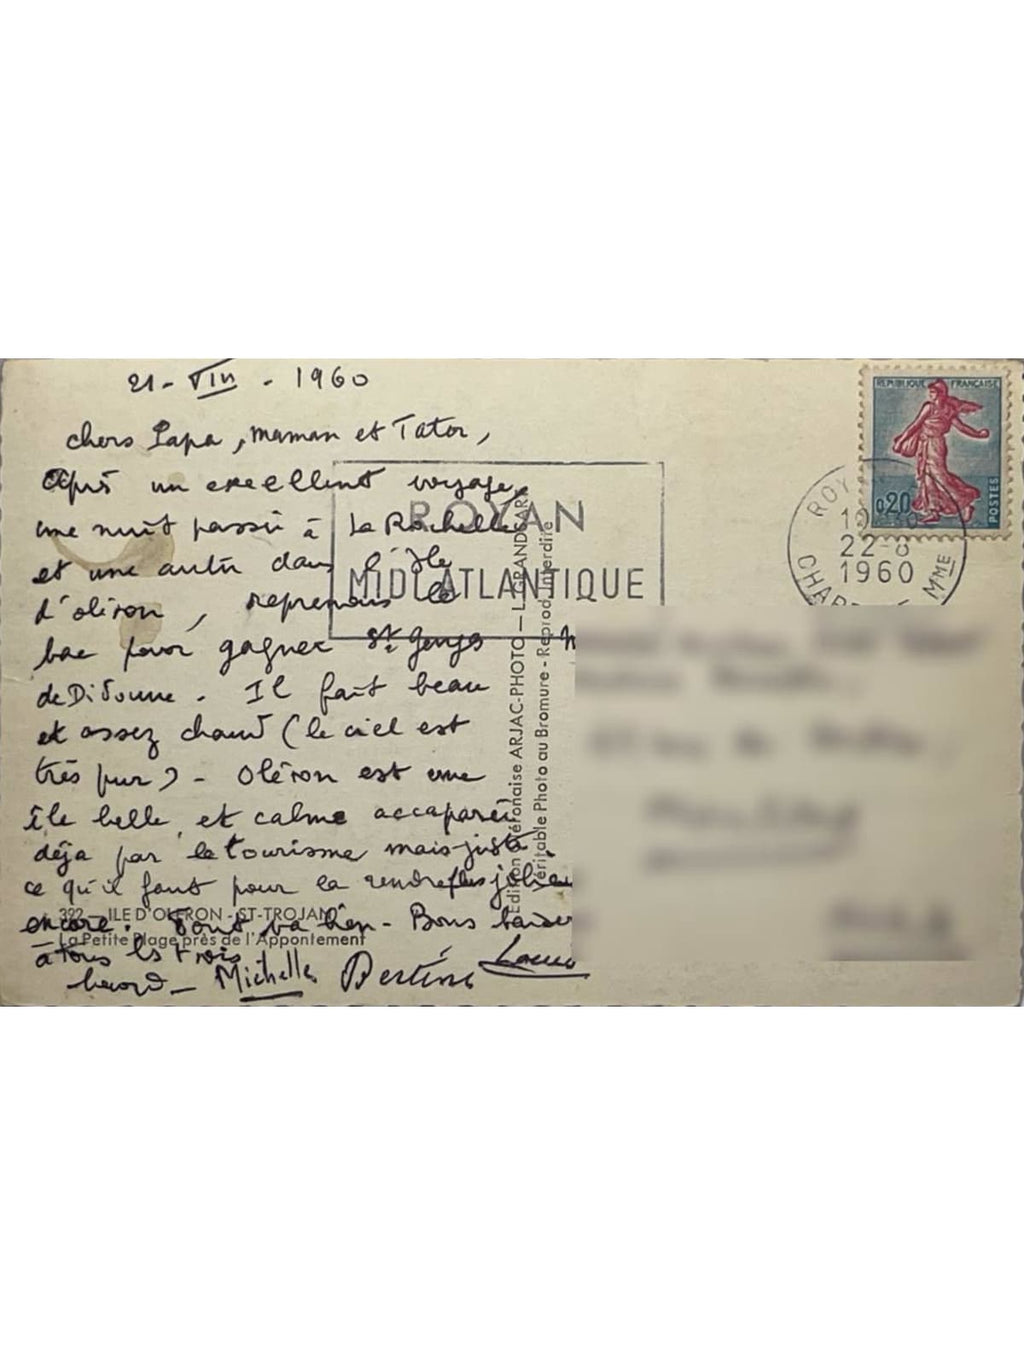 21 - VIII - 1960
Chers Papa, Maman et Tator,
Après un excellent voyage,
une nuit passée à La Rochelle
et une autre dans l'île
d'oléron, reprenons le
bac pour gagner St Georges
de Didonne. Il fait beau
et assez chaud (le ciel est
très pur) - Oléron est une
île belle et calme accaparée
déja par le tourisme mais juste
ce qu'il faut pour la rendre plus jolie
encore. Tout va bien - Bons baisers
à tous les trois
Michelle
ROYAN
MIDI ATLANTIQUE
392 - ILE D'OLERON - ST-TROJAN
La Petite Plage près de l'Appontement
Edition Oléronaise ARJAC-PHOTO — L. GRANDSARD
Véritable Photo au Bromure - Reprod. Interdite
REPUBLIQUE FRANÇAISE
0,20
POSTES
22-8
1960